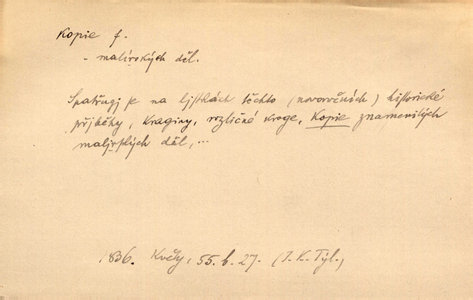 Kopie f.
- malířských děl.
Spatřugj se na ljstkách těchto (novoročních) historické
přjběhy, kraginy, rozličné kroge, Kopie znamenitých
maljřských děl,...
1836. Květy, 55.b.27. (J.K.Tyl.)